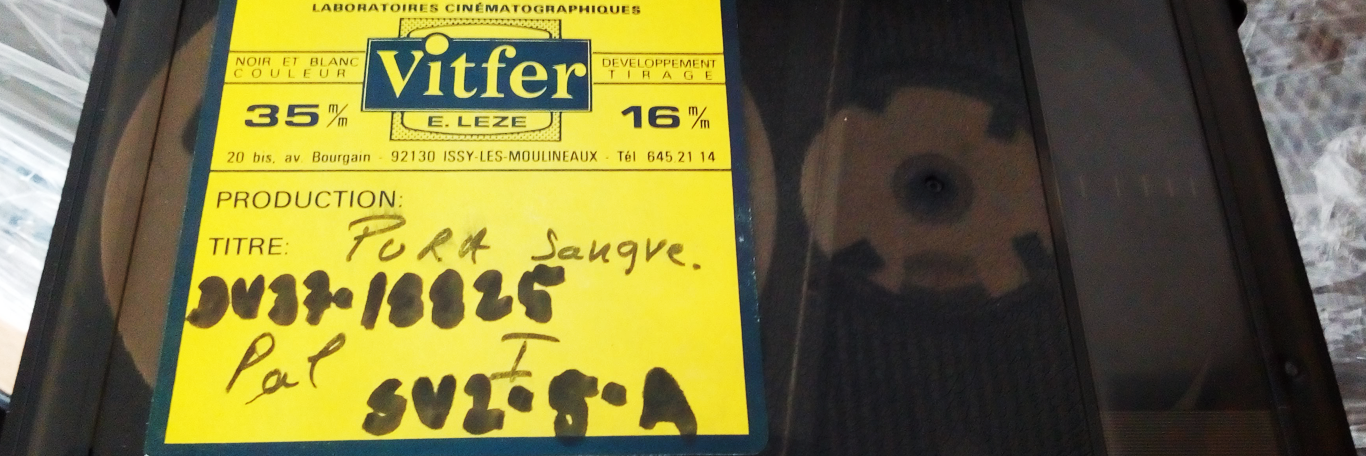 LABORATOIRES CINÉMATOGRAPHIQUES
Vitfer
NOIR ET BLANC
COULEUR
DEVELOPPEMENT
TIRAGE
35 m/m
E. LEZE
16 m/m
20 bis, av. Bourgain - 92130 ISSY-LES-MOULINEAUX - Tél 645.21 14
PRODUCTION:
TITRE: PURA Sangre.
Pal I
SV2-8-A